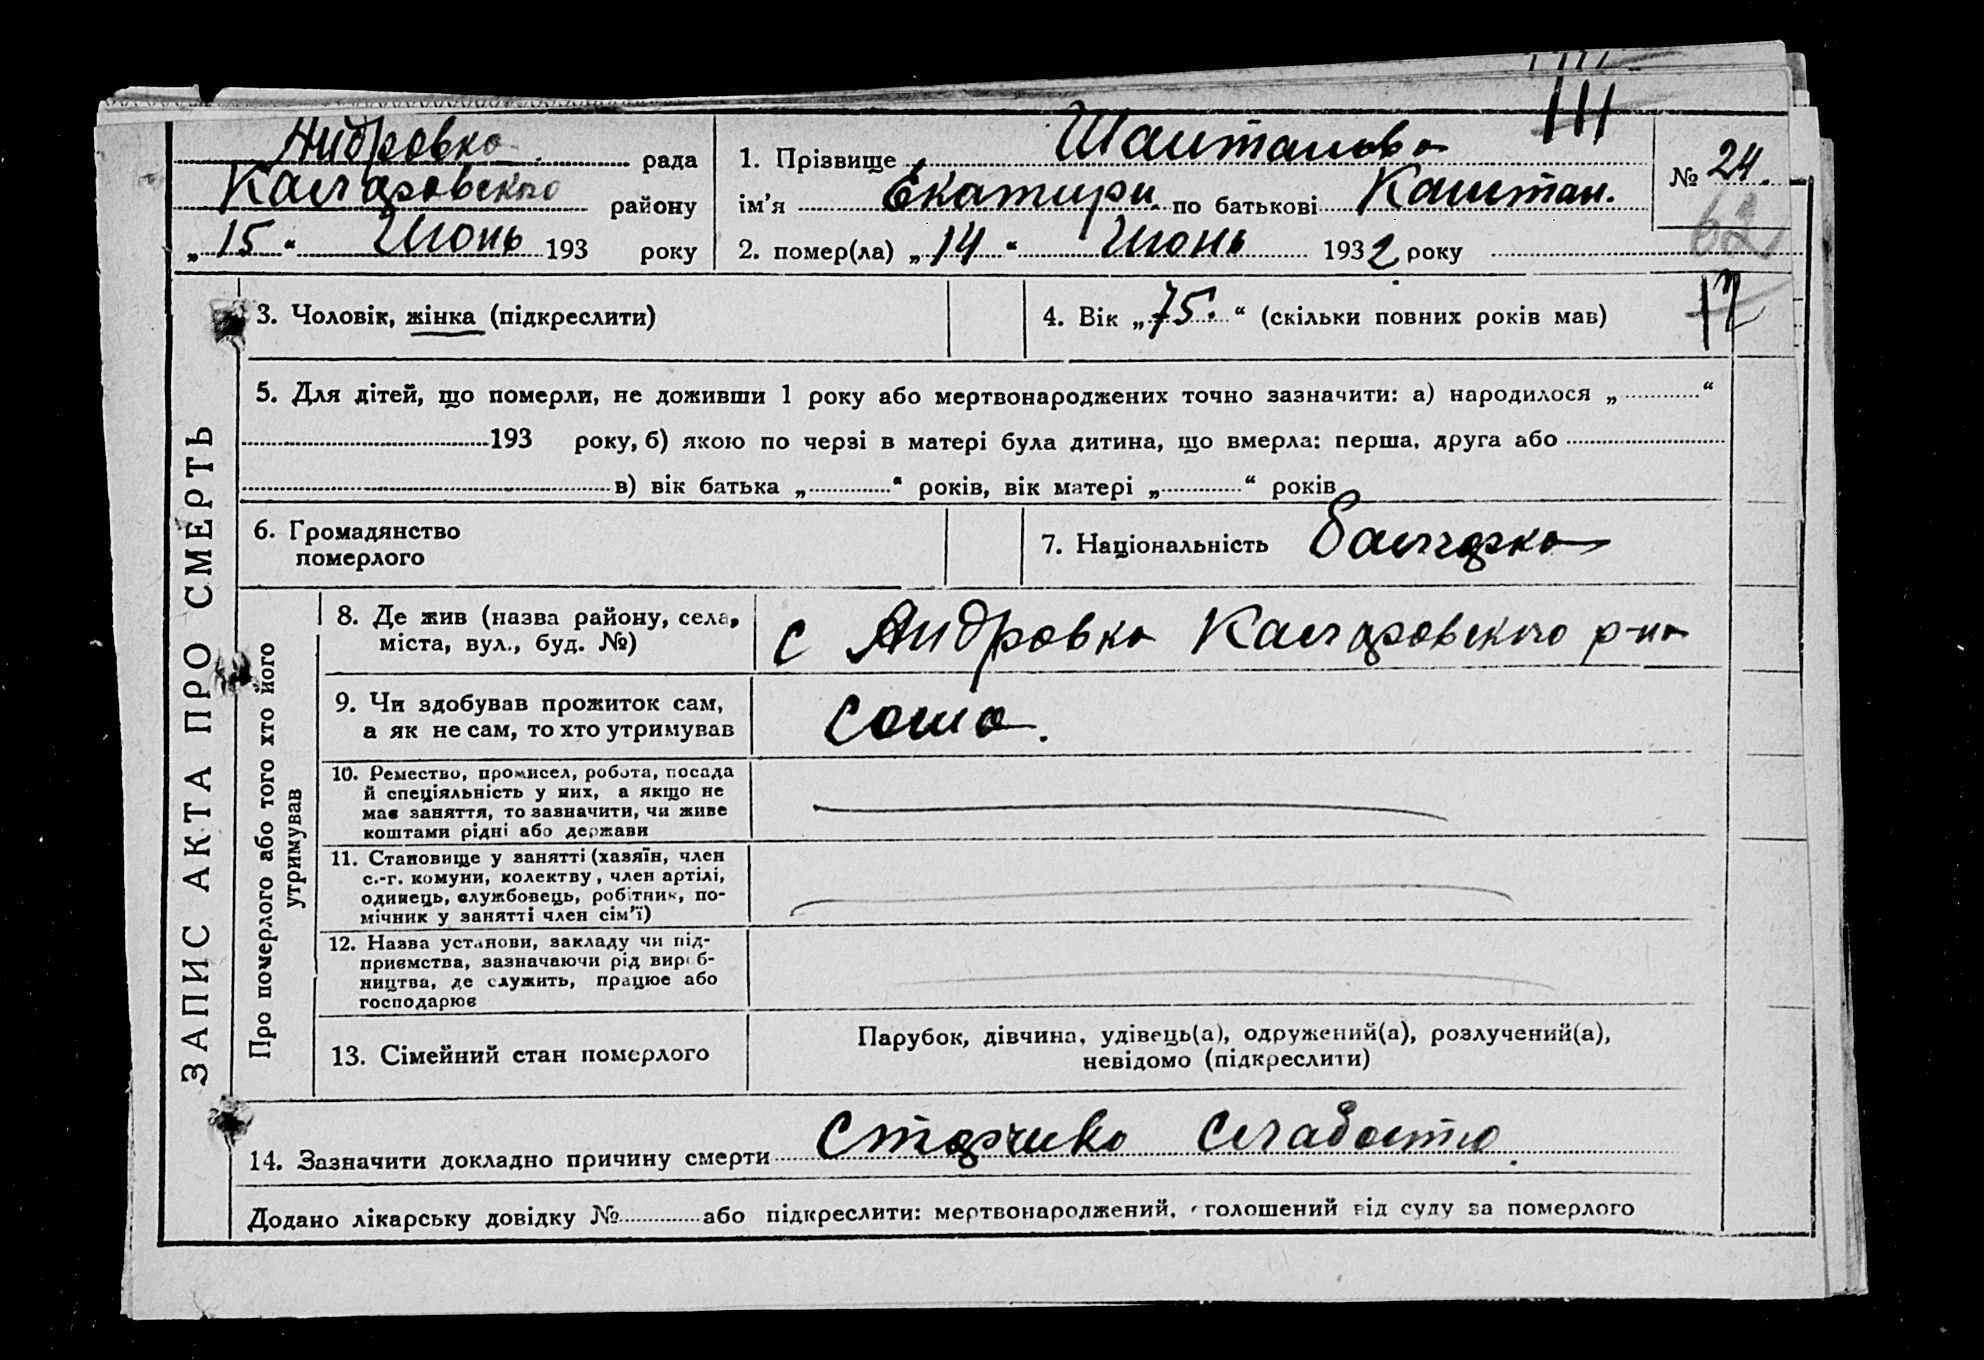 III
Андровка рада
Колларовского району
„15“ Июнь 193 року
1. Прізвище
ім’я Екатири. по батькові
2. помер(ла) „14“ Июнь 1932 року
№ 24.
62
3. Чоловік, жінка (підкреслити)
4. Вік „75.“ (скільки повних років мав)
5. Для дітей, що померли, не доживши 1 року або мертвонароджених точно зазначити: а) народилося „ “
193 року, б) якою по черзі в матері була дитина, що вмерла: перша, друга або
в) вік батька „ “ років, вік матері „ “ років
6. Громадянство
померлого
7. Національність болгарка
ЗАПИС АКТА ПРО СМЕРТЬ
Про померлого або того хто його
утримував
8. Де жив (назва району, села,
міста, вул., буд. №)
с Андровка Колларовского р-на
9. Чи здобував прожиток сам,
а як не сам, то хто утримував
сама.
10. Ремество, промисел, робота, посада
й спеціяльність у них, а якщо не
має заняття, то зазначити, чи живе
коштами рідні або держави
11. Становище у занятті (хазяїн, член
с.-г. комуни, колектву, член артілі,
одинець, службовець, робітник, по-
мічник у занятті член сім’ї)
12. Назва установи, закладу чи під-
приємства, зазначаючи рід вироб-
ництва, де служить, працює або
господарює
13. Сімейний стан померлого
Парубок, дівчина, удівець(а), одружений(а), розлучений(а),
невідомо (підкреслити)
14. Зазначити докладно причину смерти старчика слабость
Додано лікарську довідку № або підкреслити: мертвонароджений, оголошений від суду за померлого